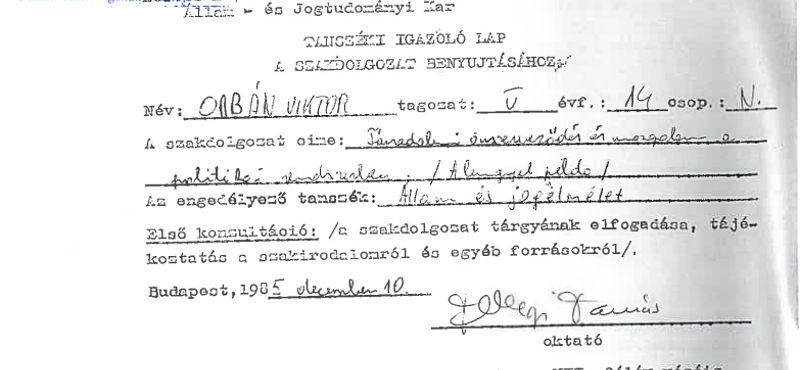 Állam - és Jogtudományi Kar
TANSZÉKI IGAZOLÓ LAP
A SZAKDOLGOZAT BENYUJTÁSÁHOZ
Név: ORBÁN VIKTOR tagozat: V évf.: 14 csop.: N.
A szakdolgozat címe: Társadalmi önszerveződés és mozgalom a
politikai rendszerben. /A lengyel példa/
Az engedélyező tanszék: Állam és jogelmélet
Első konsultáció: /a szakdolgozat tárgyának elfogadása, tájé-
koztatás a szakirodalomról és egyéb forrásokról/.
Budapest, 1985 december 10.
Fellegi Tamás
oktató